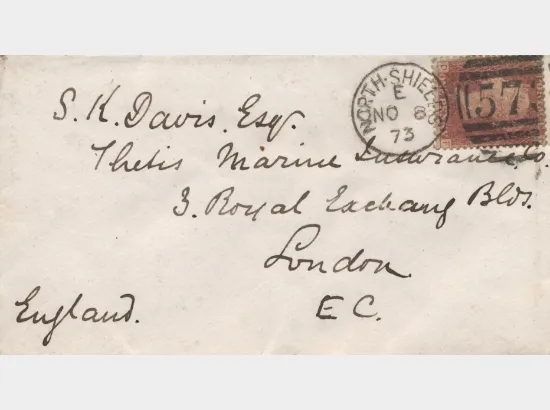 NORTH·SHIELDS
E
NO 8
73
57
D
S. K. Davis. Esqr.
Thetis Marine Insurance Co.
3. Royal Exchang Blds.
London.
E C.
England.